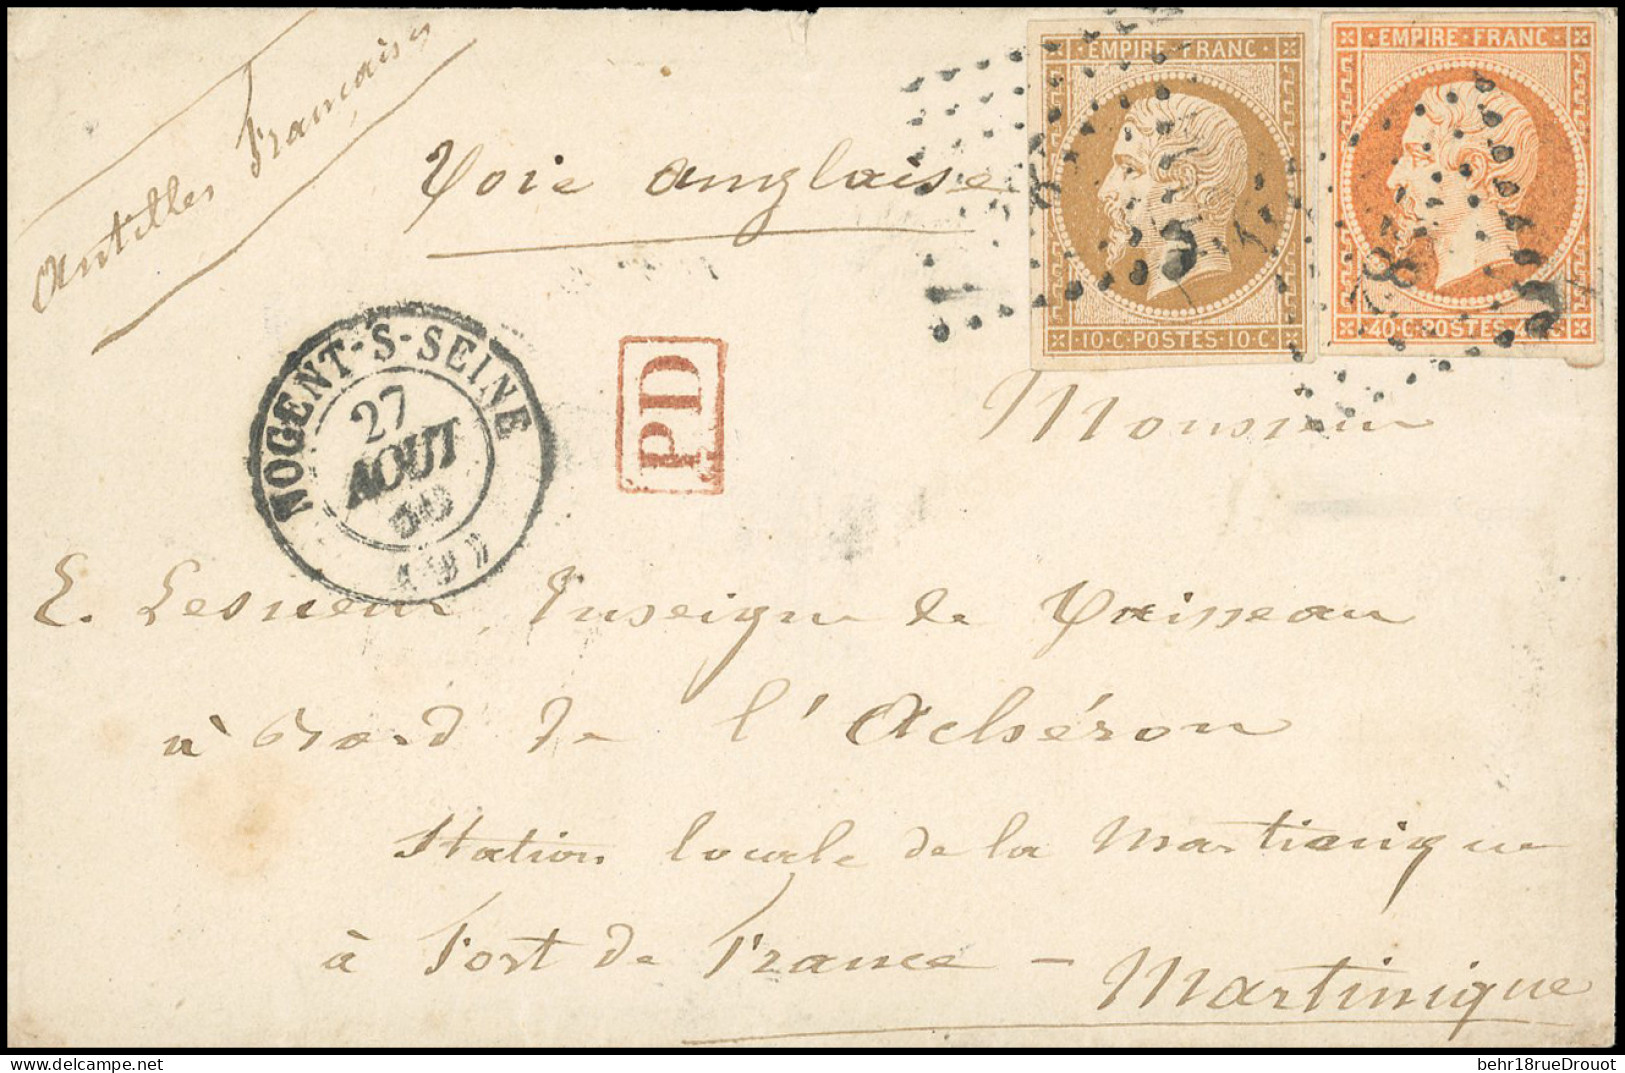 Antilles Françaises
Voie anglaise
EMPIRE·FRANC·
·10·C·POSTES·10·C·
EMPIRE·FRANC·
40·C·POSTES·4
NOGENT-S-SEINE
27
AOUT
PD
Monsieur
E. Lesueur, Enseigne de Vaisseau
à Bord de l'Achéron
Station locale de la Martinique
à Fort de France – Martinique
behr18rueDrouot